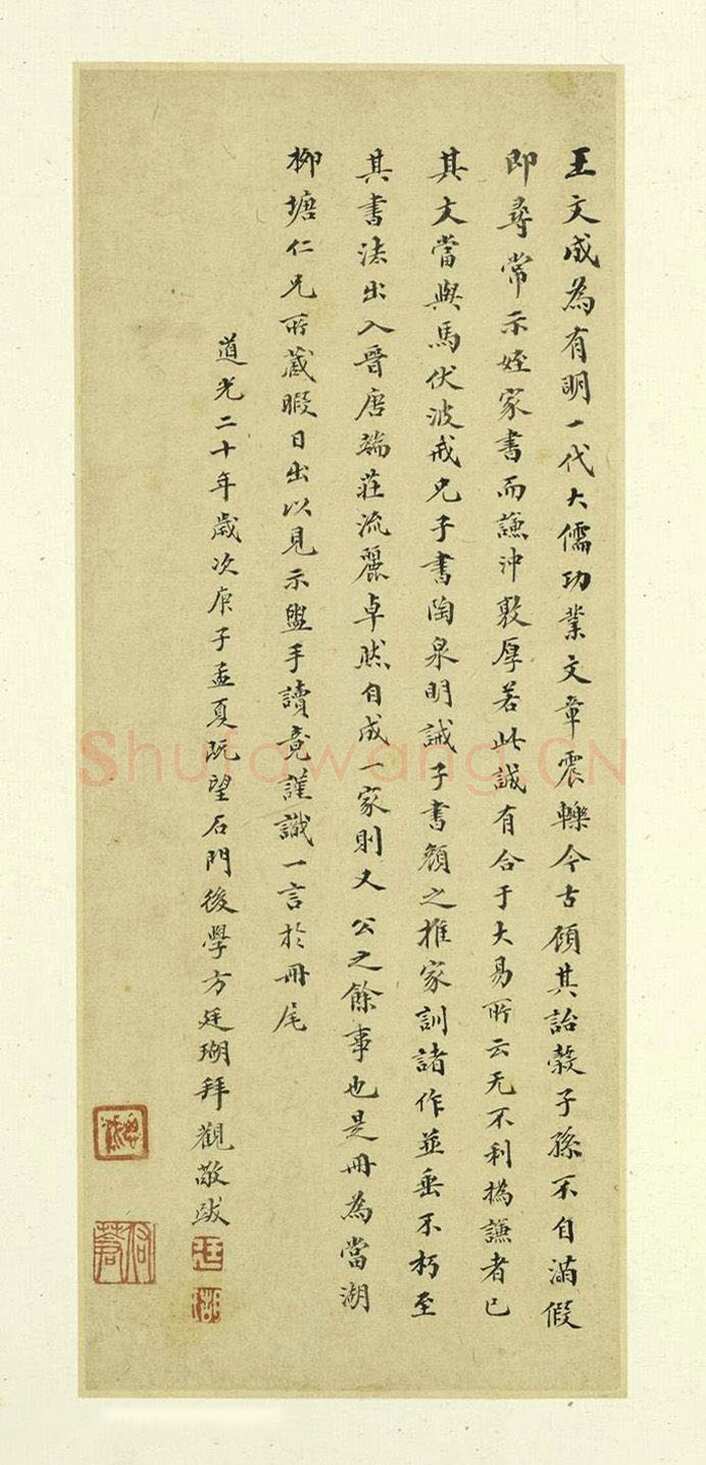 王文成為有明一代大儒功業文章震轢今古顧其詒穀子孫不自滿假
即尋常示姪家書而謙沖敦厚若此誠有合于大易所云无不利撝謙者已
其文當與馬伏波戒兄子書陶泉明誡子書顏之推家訓諸作並垂不朽至
其書法出入晉唐端莊流麗卓然自成一家則又公之餘事也是冊為當湖
柳塘仁兄所藏暇日出以見示盥手讀竟謹識一言於冊尾
道光二十年歲次庚子孟夏既望石門後學方廷瑚拜觀敬跋
Shufawang.CN